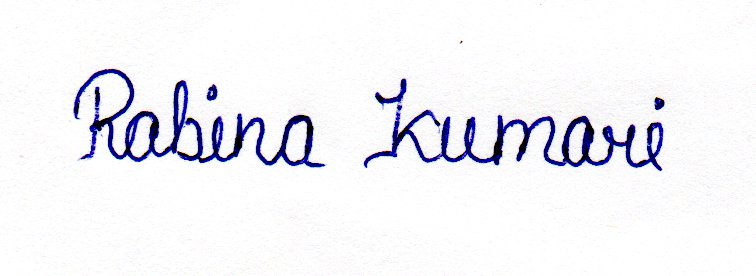 Rabina Kumari